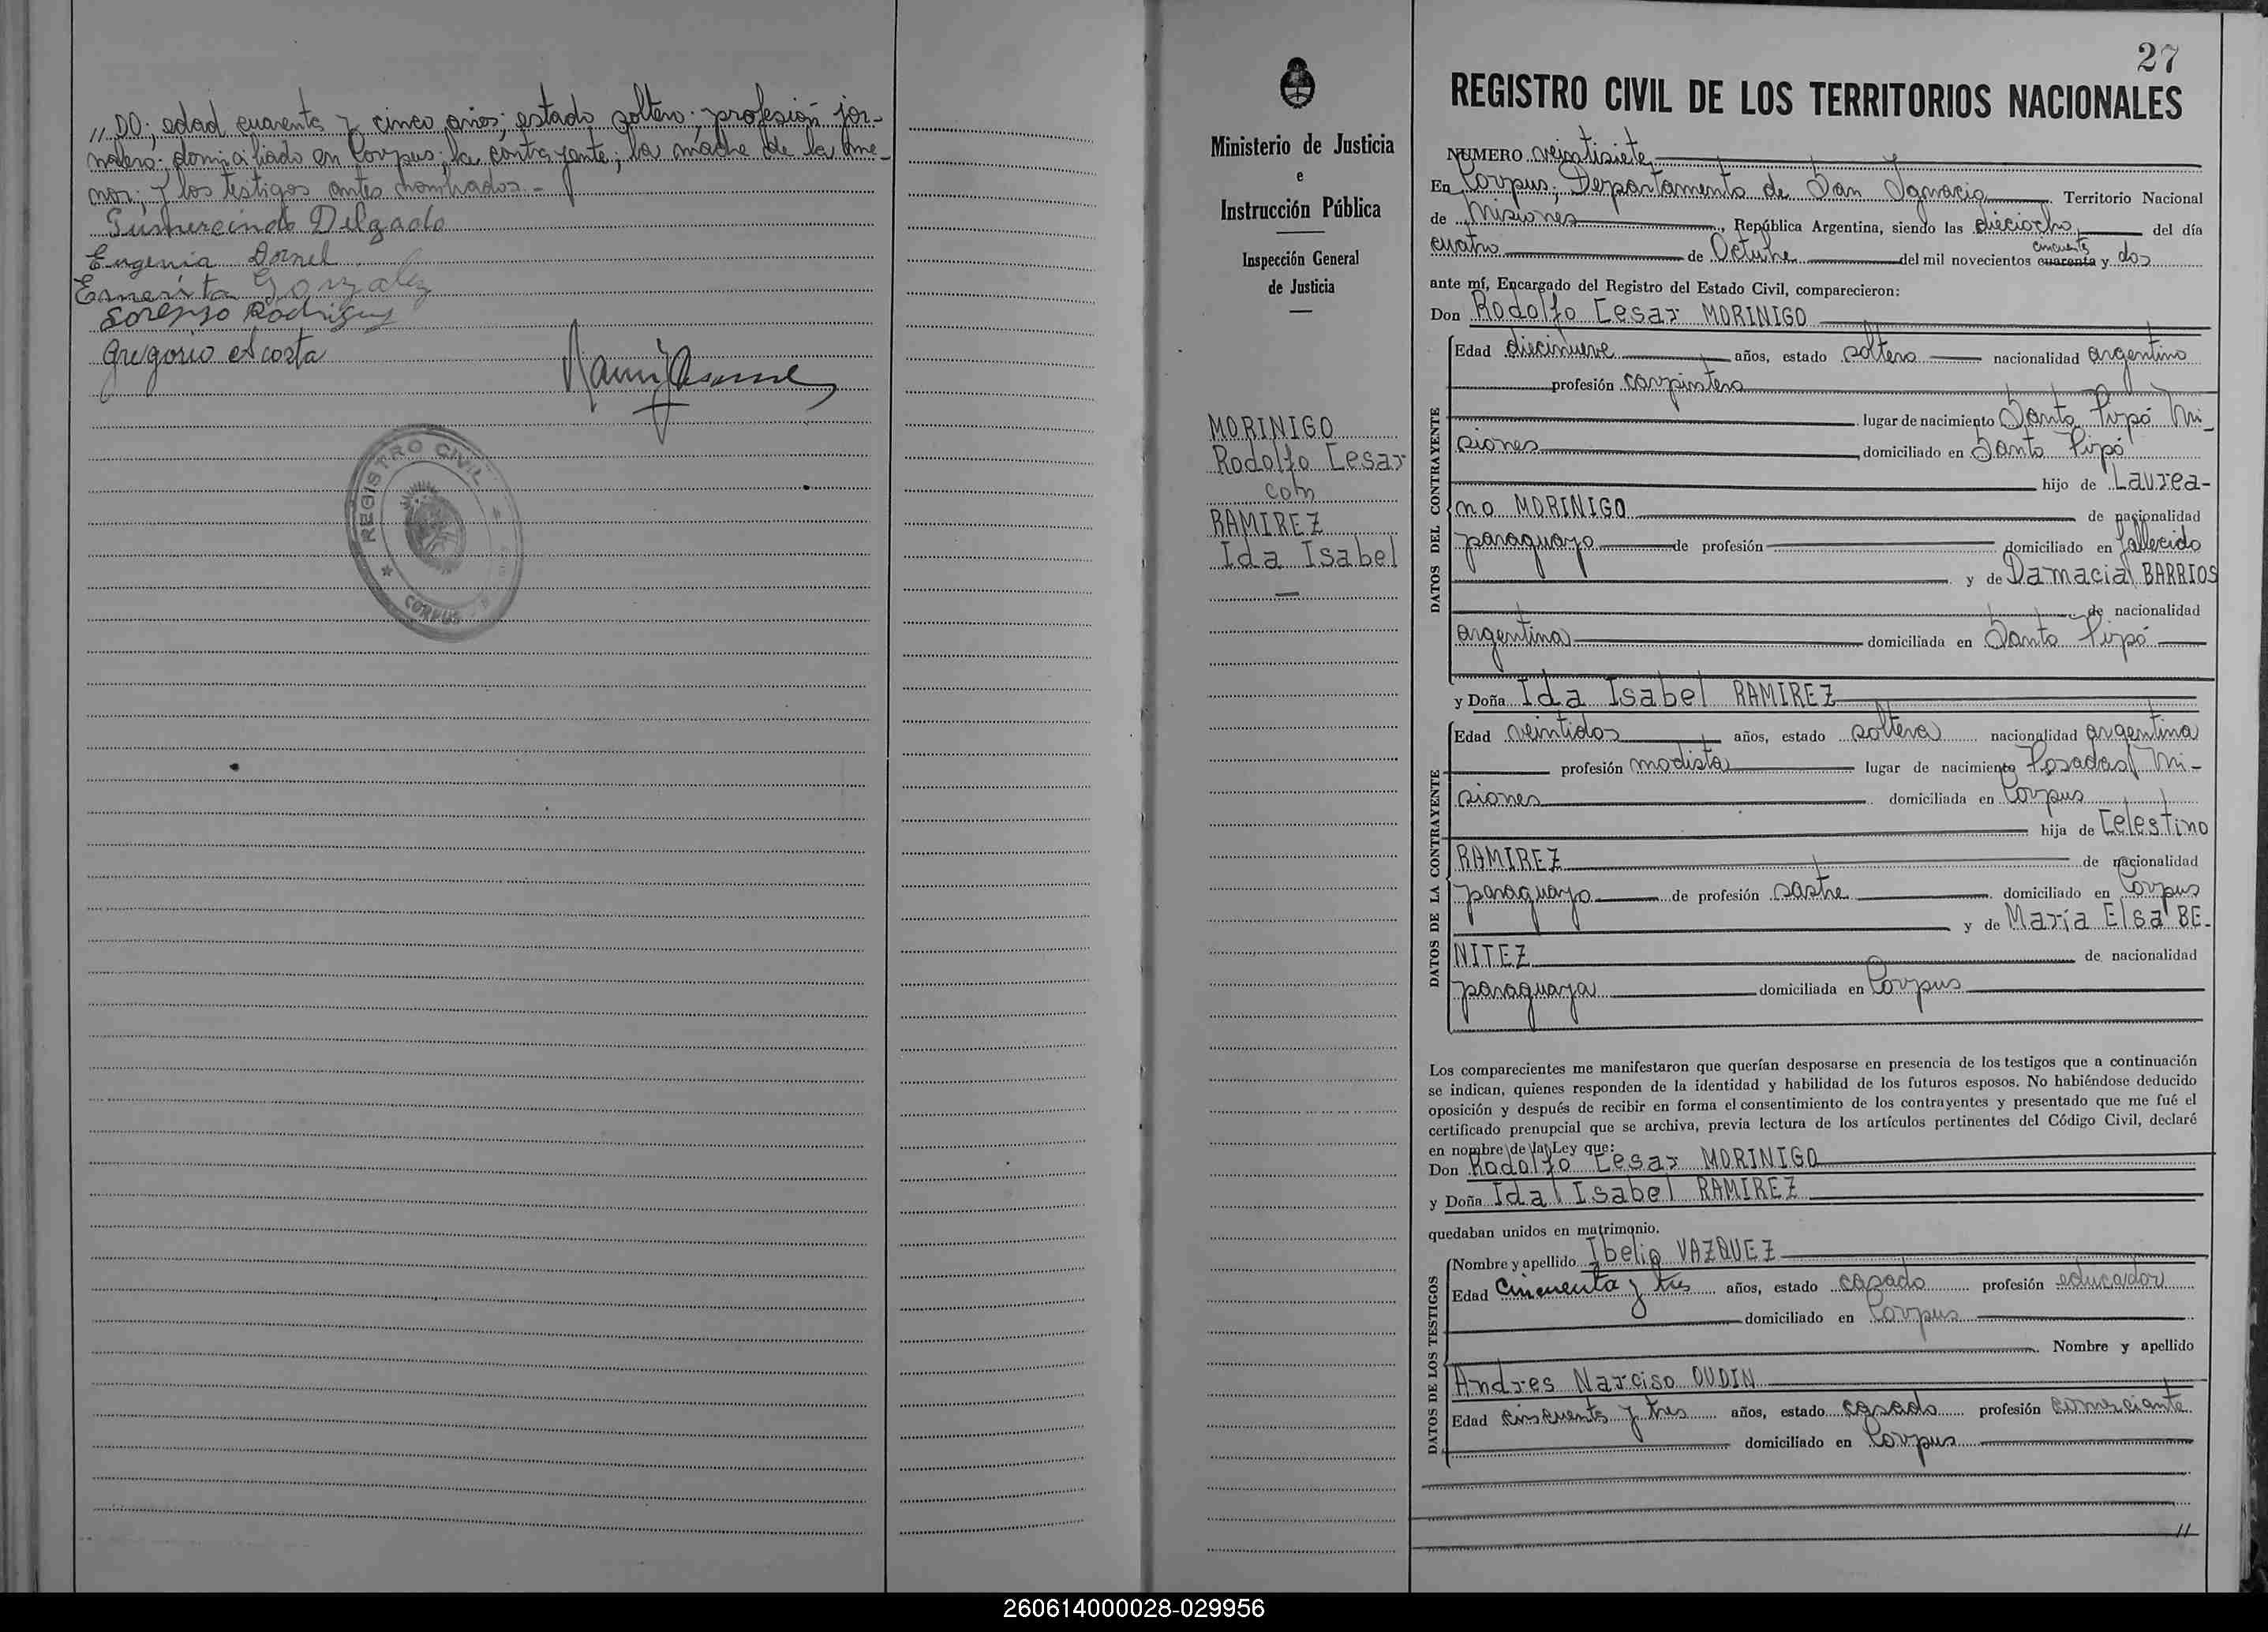 " DO; edad cuarenta y cinco años; estado soltero; profesión jor-
nalero; domiciliado en Corpus; la contrayente; la madre de la me-
nor; y los testigos antes nombrados.-
Gumercindo Delgado
Eugenia Dornel
Emerita Gonzalez
Lorenzo Rodriguez
Gregorio Acosta
REGISTRO CIVIL
CORPUS
Ministerio de Justicia
e
Instrucción Pública
Inspección General
de Justicia
MORINIGO
Rodolfo Cesar
con
RAMIREZ
Ida Isabel
27
REGISTRO CIVIL DE LOS TERRITORIOS NACIONALES
NUMERO veintisiete
En Corpus; Departamento de San Ignacio Territorio Nacional
de Misiones, República Argentina, siendo las dieciocho del día
cuatro de Octubre del mil novecientos cuarenta cincuenta y dos
ante mí, Encargado del Registro del Estado Civil, comparecieron:
Don Rodolfo Cesar MORINIGO
DATOS DEL CONTRAYENTE
Edad diecinueve años, estado soltero nacionalidad argentino
profesión carpintero
lugar de nacimiento Santo Pipó Mi-
siones, domiciliado en Santo Pipó
hijo de Laurea-
no MORINIGO de nacionalidad
paraguayo de profesión domiciliado en fallecido
y de Damacia BARRIOS
de nacionalidad
argentina domiciliada en Santo Pipó
y Doña Ida Isabel RAMIREZ
DATOS DE LA CONTRAYENTE
Edad veintidos años, estado soltera nacionalidad argentina
profesión modista lugar de nacimiento Posadas Mi-
siones domiciliada en Corpus
hija de Celestino
RAMIREZ de nacionalidad
paraguayo de profesión sastre domiciliado en Corpus
y de María Elsa BE-
NITEZ de nacionalidad
paraguaya domiciliada en Corpus
Los comparecientes me manifestaron que querían desposarse en presencia de los testigos que a continuación
se indican, quienes responden de la identidad y habilidad de los futuros esposos. No habiéndose deducido
oposición y después de recibir en forma el consentimiento de los contrayentes y presentado que me fué el
certificado prenupcial que se archiva, previa lectura de los artículos pertinentes del Código Civil, declaré
en nombre de la Ley que:
Don Rodolfo Cesar MORINIGO
y Doña Ida Isabel RAMIREZ
quedaban unidos en matrimonio.
DATOS DE LOS TESTIGOS
Nombre y apellido Ibelio VAZQUEZ
Edad Cincuenta y tres años, estado casado profesión educador
domiciliado en Corpus
Nombre y apellido
Andres Narciso OUDIN
Edad cincuenta y tres años, estado casado profesión comerciante
domiciliado en Corpus
//
260614000028-029956